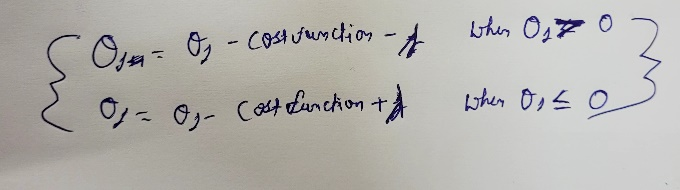 θ₁ = θ₁ - cost function - λ when θ₁ > 0
θ₁ = θ₁ - cost function + λ when θ₁ ≤ 0